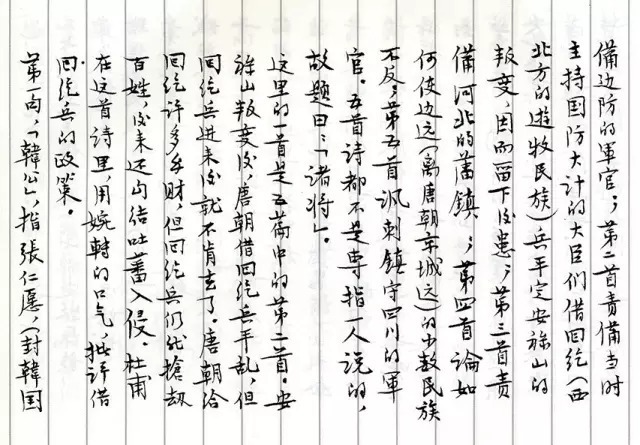 備边防的軍官；第二首责備当时
主持国防大计的大臣们借回纥（西
北方的遊牧民族）兵平定安祿山的
叛变，因而留下後患；第三首責
備河北的藩鎮；第四首論如
何使边远（离唐朝京城远）的少数民族
不反；第五首讽刺鎮守四川的軍
官。五首诗都不是専指一人说的，
故题曰：「诸将」。
这里的一首是五篇中的第二首。安
祿山叛变後，唐朝借回纥兵平乱，但
回纥兵进来後就不肯去了。唐朝给
回纥许多钱财，但回纥兵仍然搶劫
百姓，後来还勾结吐蕃入侵。杜甫
在这首诗里，用婉轉的口气，批评借
回纥兵的政策。
第一句，「韓公」，指張仁愿（封韓国